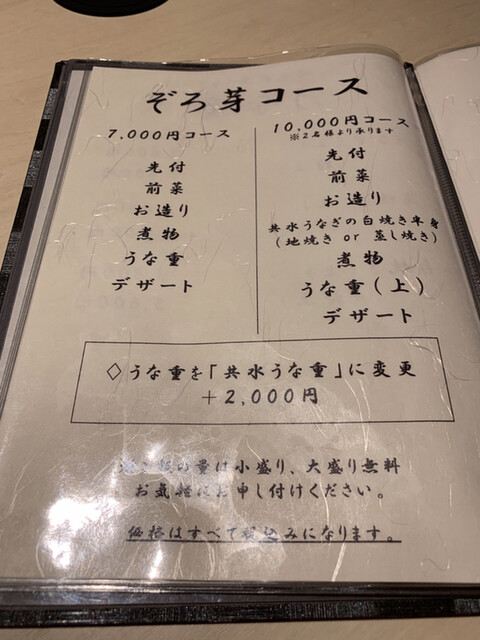 ぞろ芽コース
7,000円コース
先付
前菜
お造り
煮物
うな重
デザート
10,000円コース
※2名様より承ります
先付
前菜
お造り
共水うなぎの白焼き半身
(地焼き or 蒸し焼き)
煮物
うな重(上)
デザート
◇うな重を「共水うな重」に変更
+2,000円
の量は小盛り、大盛り無料
お気軽にお申し付けください。
価格はすべて税込みになります。